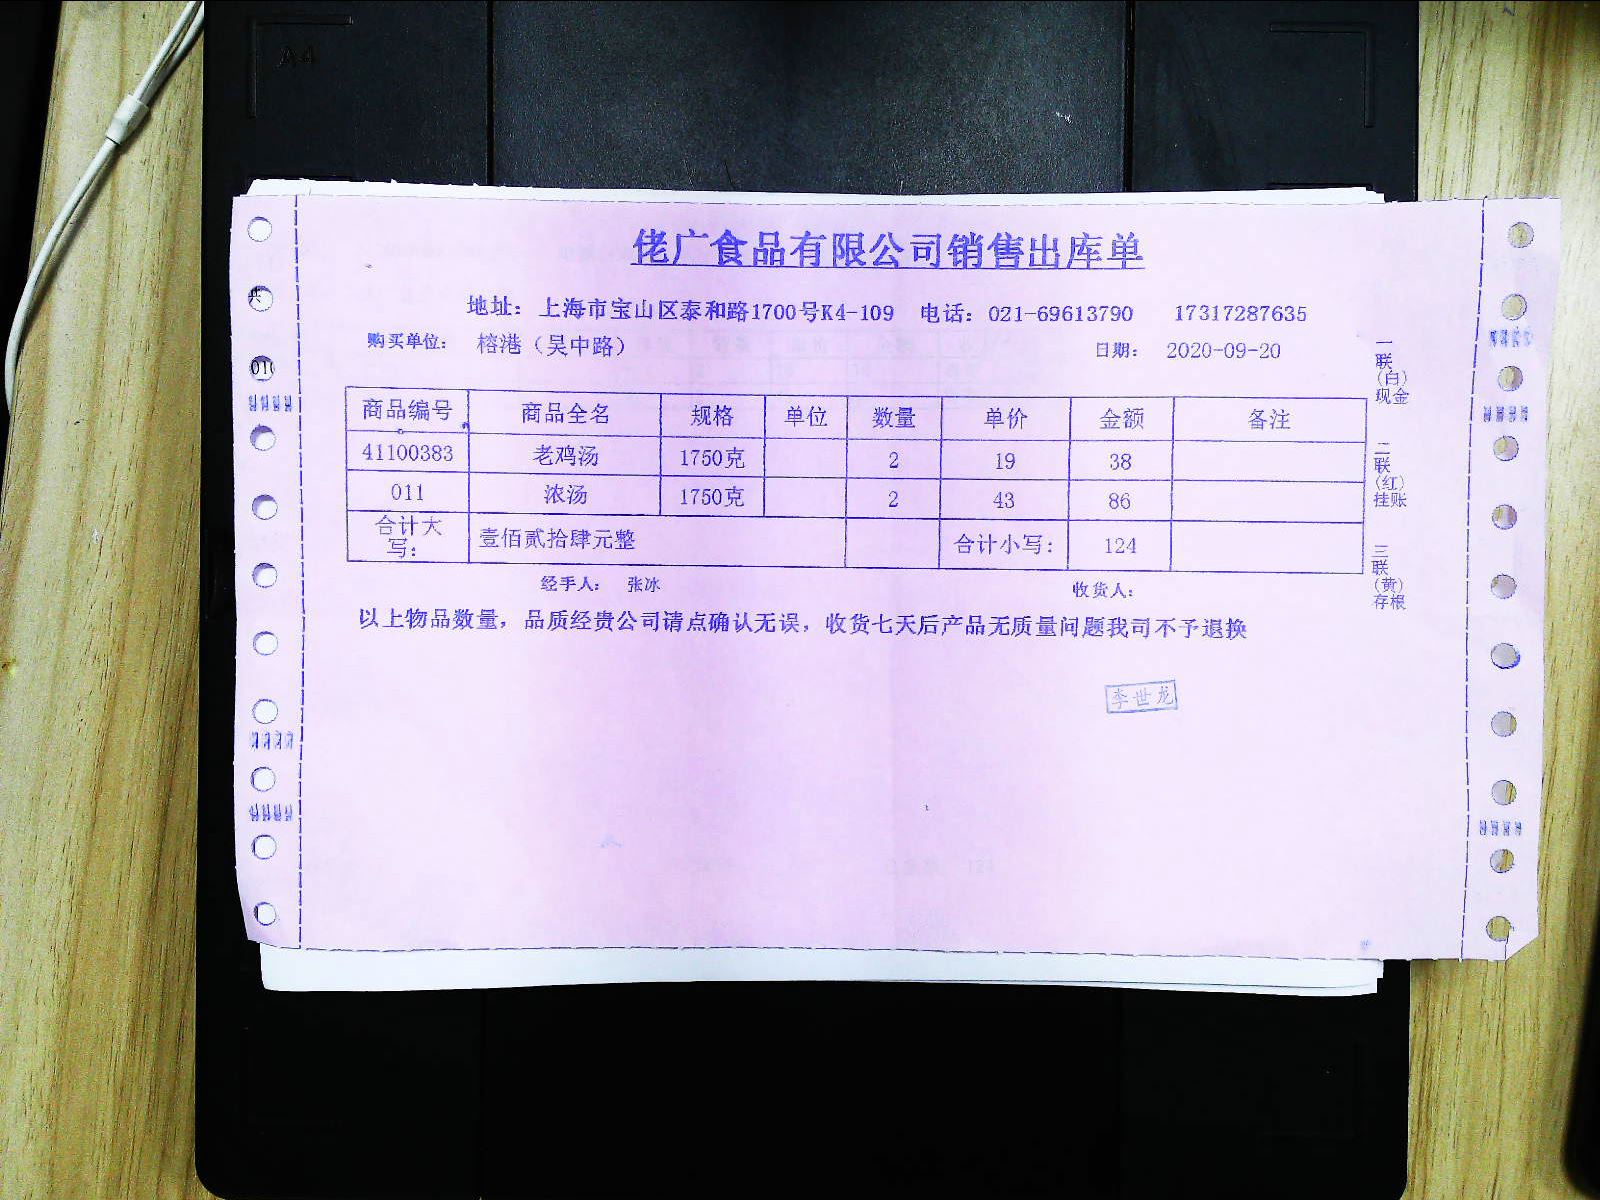 A4
佬广食品有限公司销售出库单
地址： 上海市宝山区泰和路1700号K4-109 电话：021-69613790 17317287635
购买单位： 榕港（吴中路） 日期： 2020-09-20
商品编号 商品全名 规格 单位 数量 单价 金额 备注
41100383 老鸡汤 1750克 2 19 38
011 浓汤 1750克 2 43 86
合计大写： 壹佰贰拾肆元整 合计小写： 124
经手人： 张冰 收货人：
以上物品数量，品质经贵公司请点确认无误，收货七天后产品无质量问题我司不予退换
一联（白）现金
二联（红）挂账
三联（黄）存根
李世龙